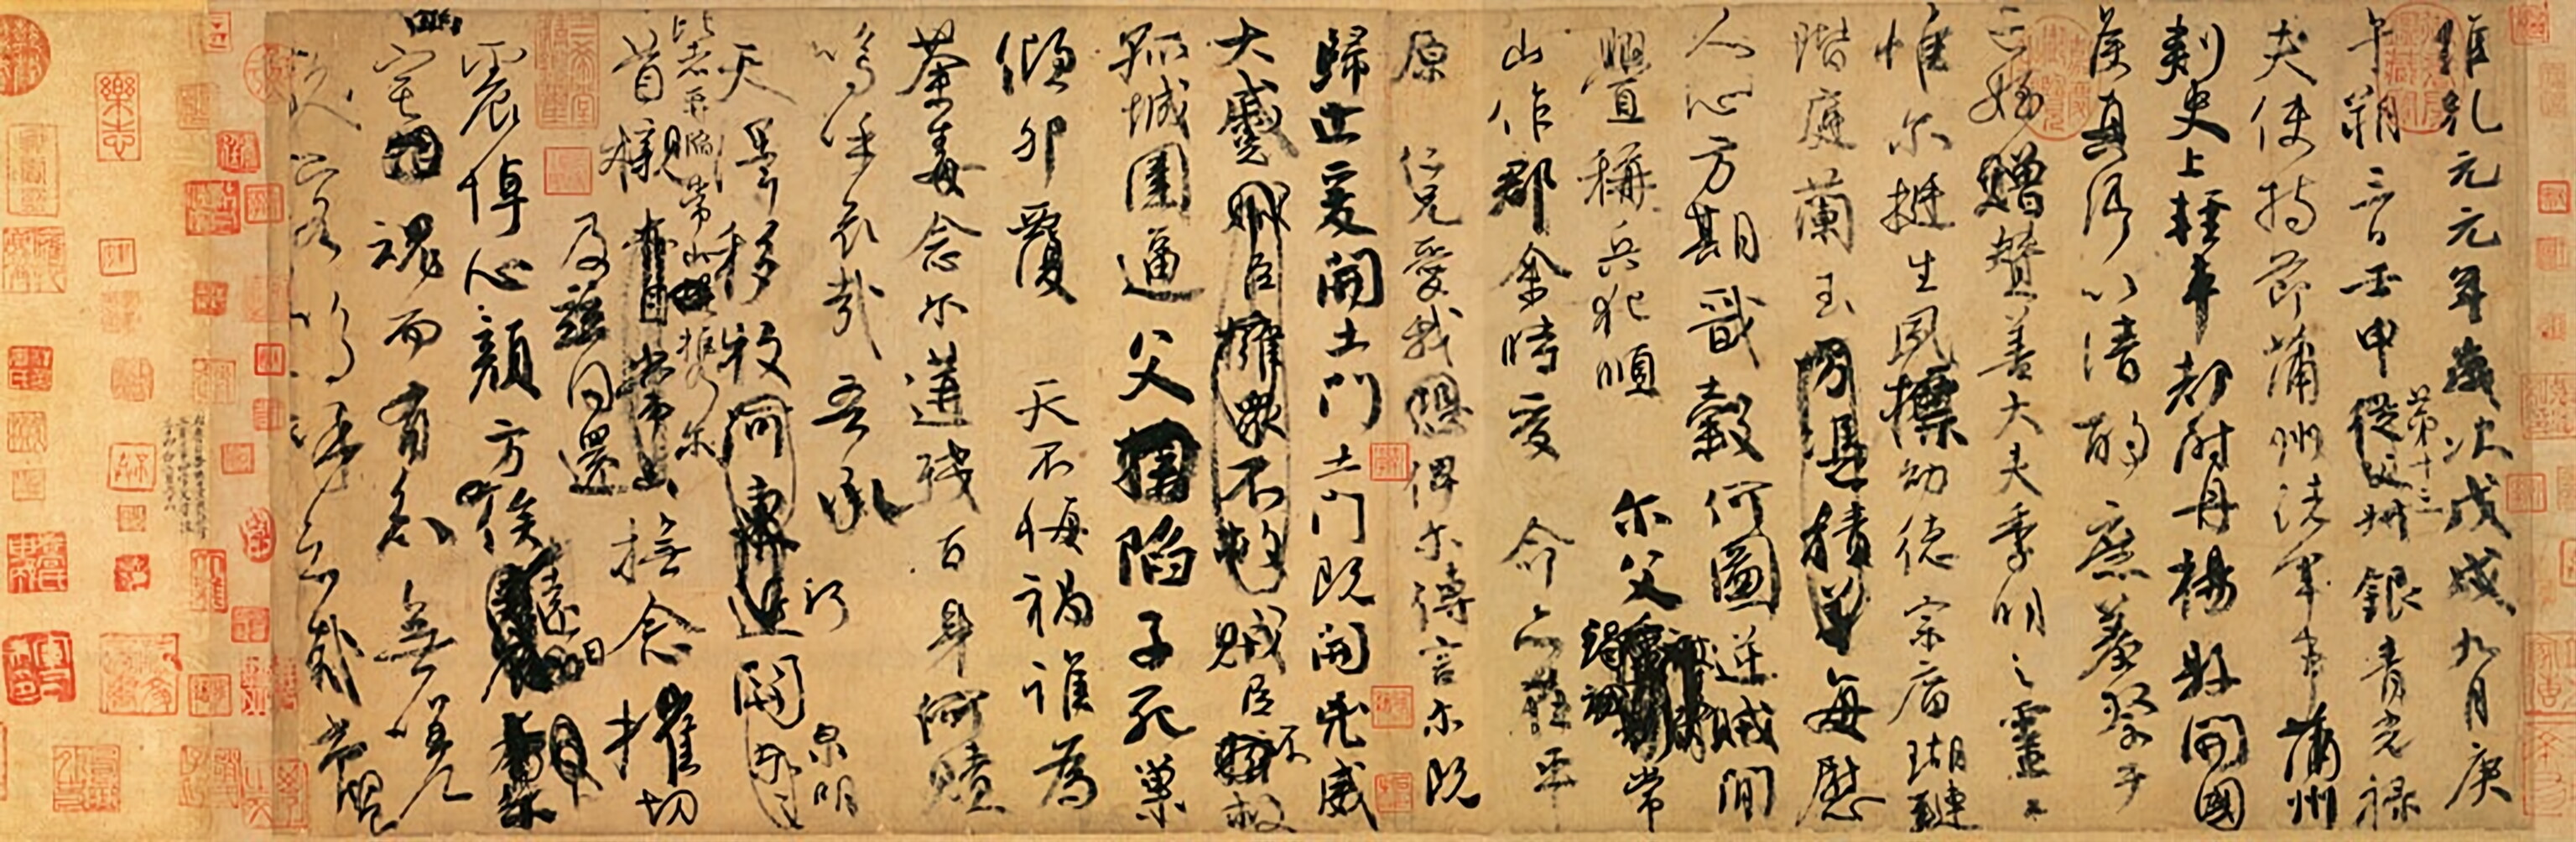 維乾元元年歲次戊戌九月庚
午朔三日壬申第十三從父銀青光祿
夫使持節蒲州諸軍事蒲州
刺史上輕車都尉丹楊縣開國
侯真卿以清酌庶羞祭于
亡姪贈贊善大夫季明之靈
惟爾挺生夙標幼德宗廟瑚璉
階庭蘭玉方憑積善每慰
人心方期戩穀何圖逆賊閒
釁稱兵犯順爾父竭誠常
山作郡余時受命亦在平
原仁兄愛我俾爾傳言爾既
歸止爰開土門土門既開兇威
大蹙賊臣擁眾不救賊臣不救
孤城圍逼父陷子死巢
傾卵覆天不悔禍誰為
荼毒念爾遘殘百身何贖
嗚呼哀哉吾承
天澤移牧河東近河關泉明
比者再陷常山攜爾
首櫬及茲同還撫念摧切
震悼心顏方俟遠日
卜爾幽宅魂而有知無嗟
久客嗚呼哀哉尚饗